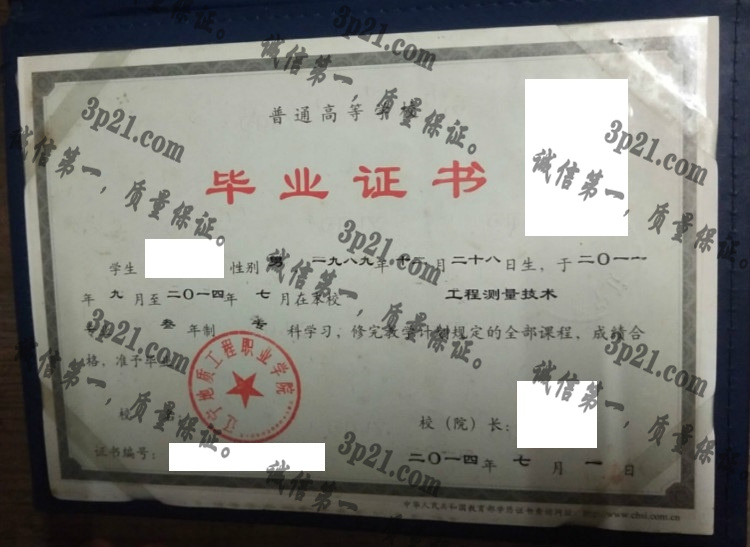 普通高等学校
毕业证书
学生 性别 男 一九八九年十二月二十八日生，于二〇一一
年九月至二〇一四年七月在本校 工程测量技术
专业 叁年制 专科学习，修完教学计划规定的全部课程，成绩合
格，准予毕业。
辽宁地质工程职业学院
校 名：
校（院）长：
证书编号：
二〇一四年七月一日
中华人民共和国教育部学历证书查询网址：http://www.chsi.com.cn
3p21.com
诚信第一，质量保证。
3p21.com
诚信第一，质量保证。
3p21.com
诚信第一，质量保证。
3p21.com
诚信第一，质量保证。
3p21.com
诚信第一，质量保证。
3p21.com
诚信第一，质量保证。
3p21.com
诚信第一，质量保证。